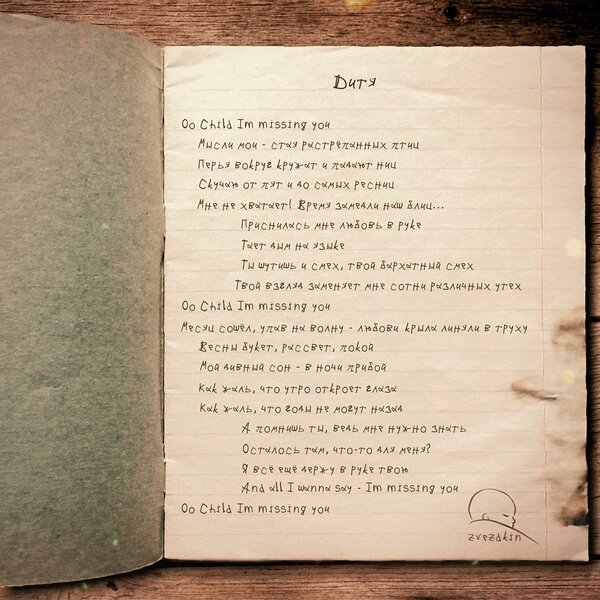 Дитя
Oo Child Im missing you
Мысли мои - стая растрёпанных птиц
Перья вокруг кружат и падают ниц
Скучаю от пят и до самых ресниц
Мне не хватает! Время замедли наш блиц...
Приснилась мне любовь в руке
Тает дым на языке
Ты шутишь и смех, твой бархатный смех
Твой взгляд заменяет мне сотни различных утех
Oo Child Im missing you
Месяц сошёл, упав на волну - любови крыла линяли в труху
Весны букет, рассвет, покой
Мой дивный сон - в ночи прибой
Как жаль, что утро откроет глаза
Как жаль, что годы не могут назад
А помнишь ты, ведь мне нужно знать
Осталось там, что-то для меня?
Я всё ещё держу в руке твою
And all I wanna say - Im missing you
Oo Child Im missing you
zvezdkin